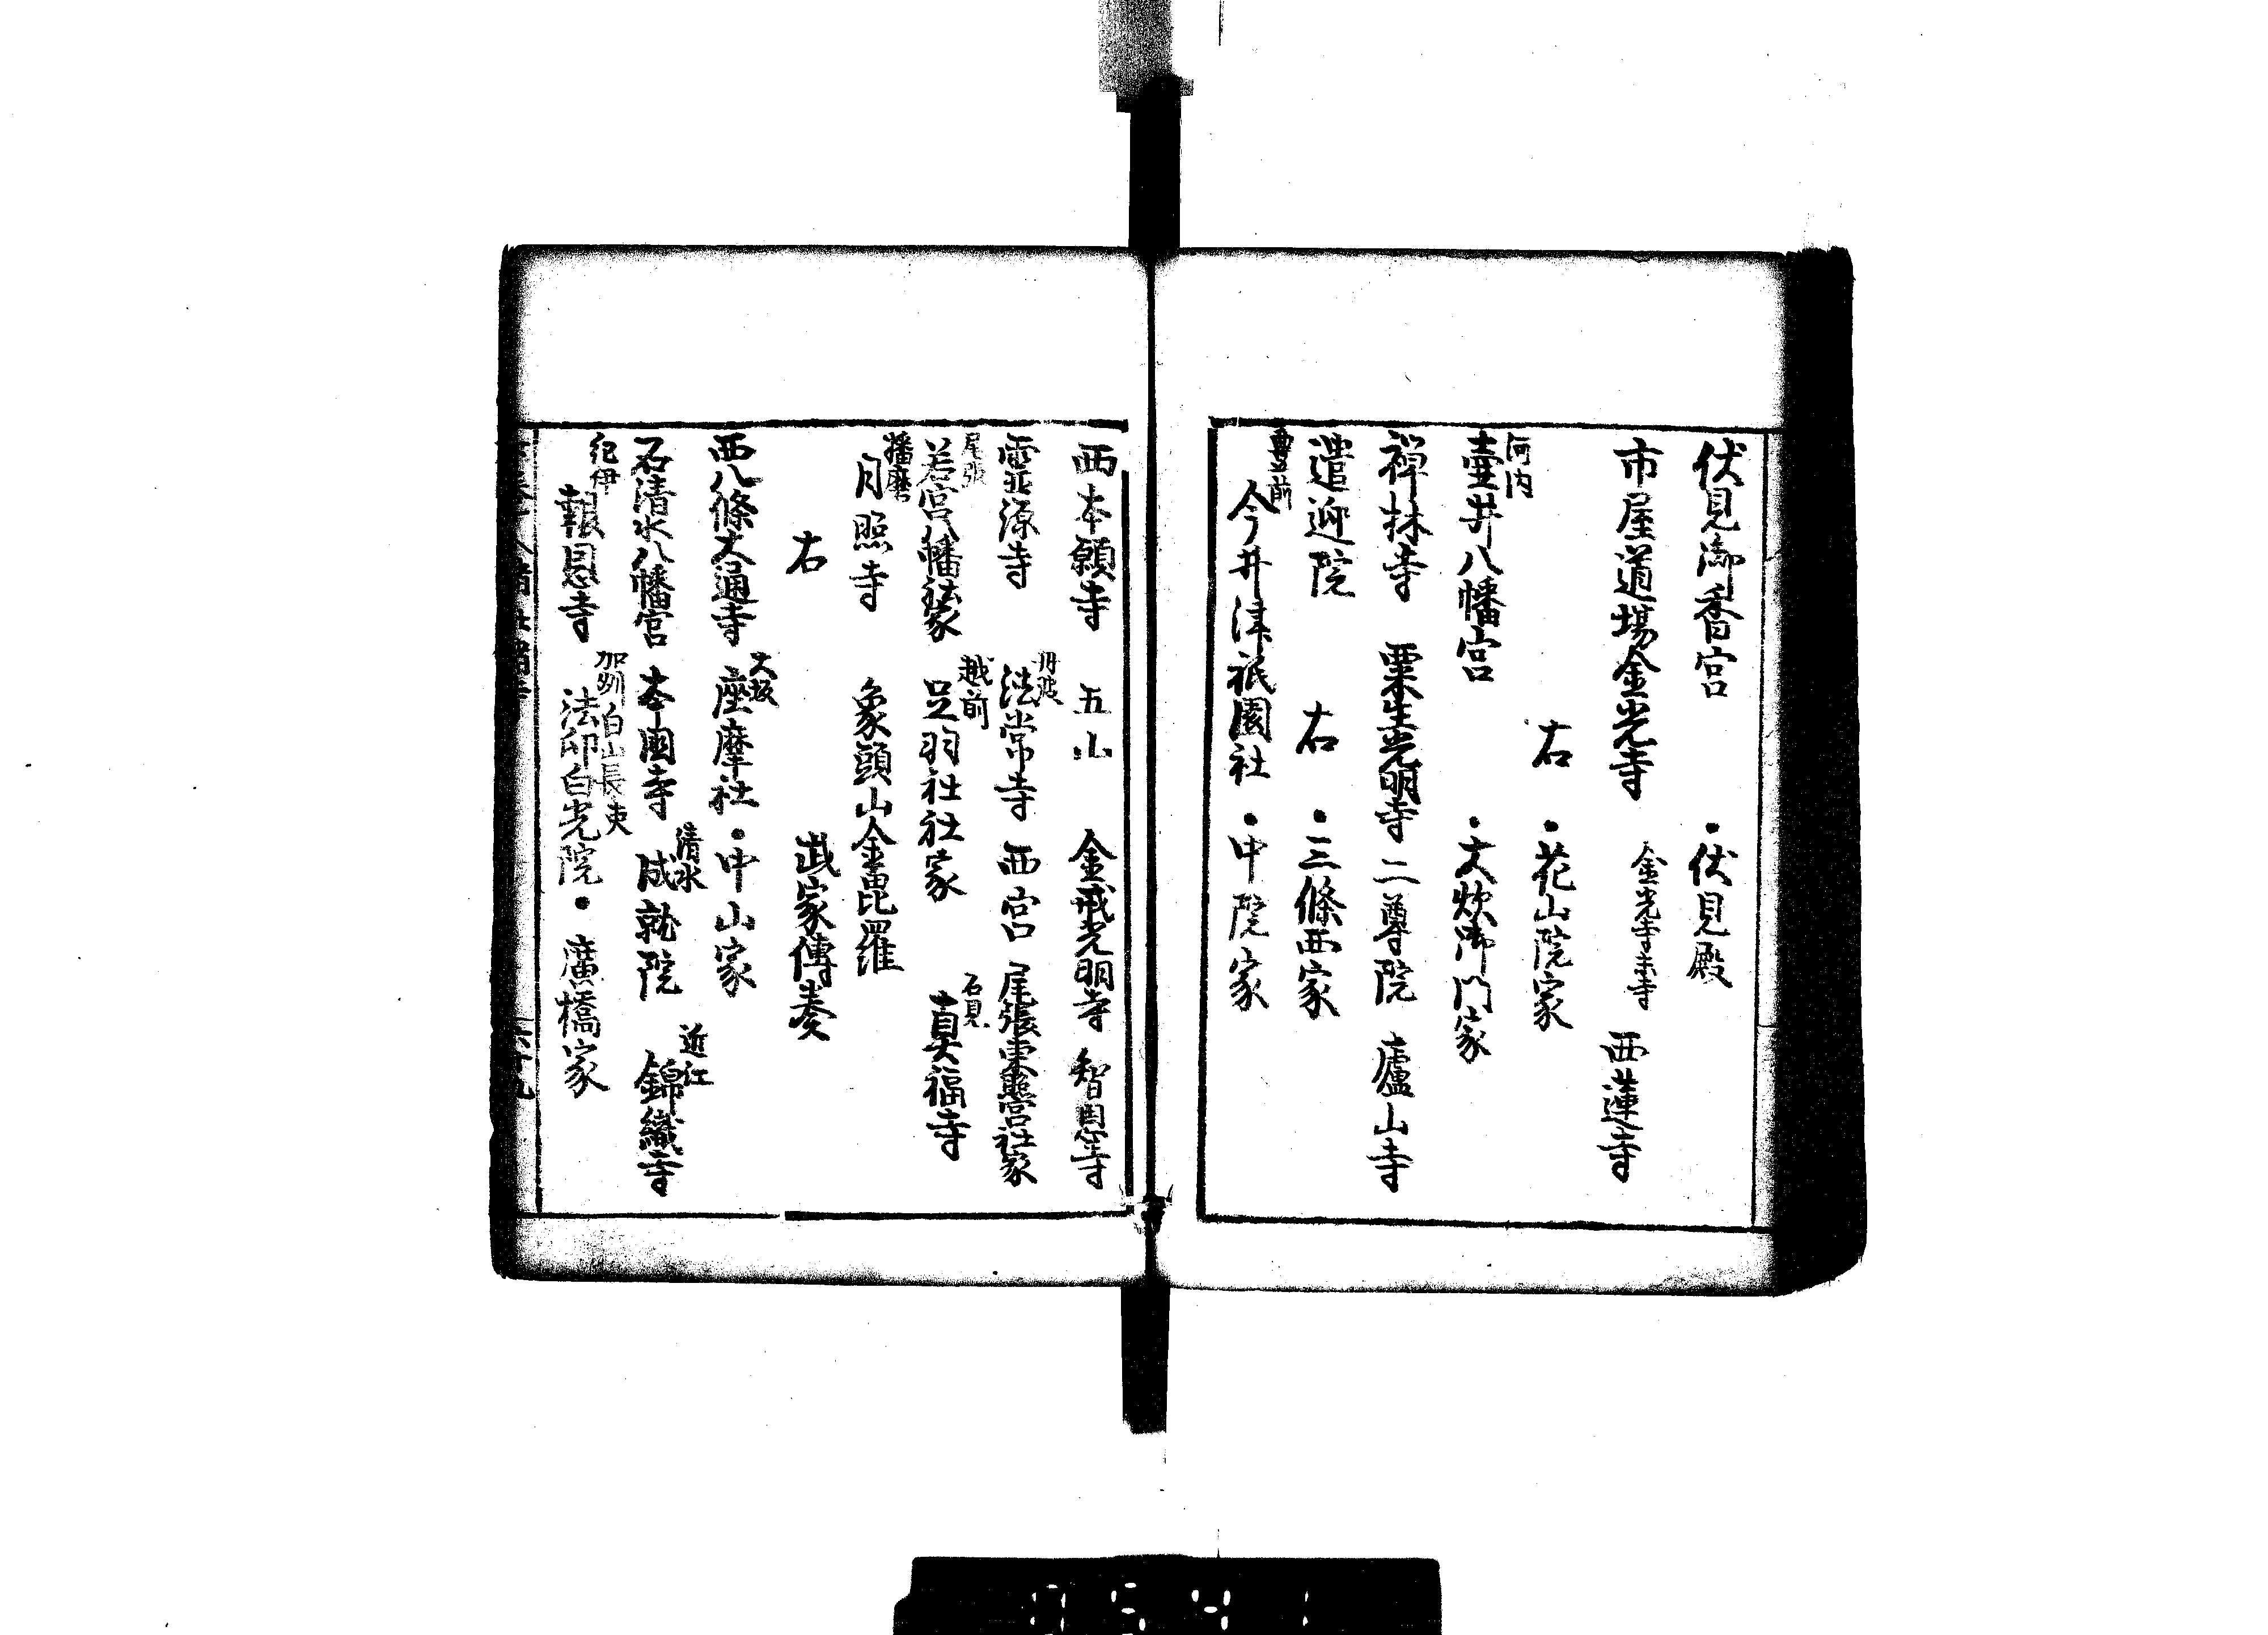 伏見御香宮　・伏見殿
市屋道場金光寺　金光寺末寺　西蓮寺
右　・花山院家
河内
壷井八幡宮　・大炊御門家
禅林寺　粟生光明寺　二尊院　廬山寺
遣迎院　右　・三條西家
豊前
今井津祇園社　・中院家
西本願寺　五山　金戒光明寺　智恩寺
霊源寺　丹波　法常寺　西宮　尾張東照宮社家
尾張　若宮八幡社家　越前　足羽社社家　石見　真福寺
播磨　月照寺　象頭山金毘羅
右　武家傳奏
西八條大通寺　大坂　座摩社　・中山家
石清水八幡宮　本國寺　清水　成就院　近江　錦織寺
紀伊　報恩寺　加州白山長吏　法印白光院　・廣橋家